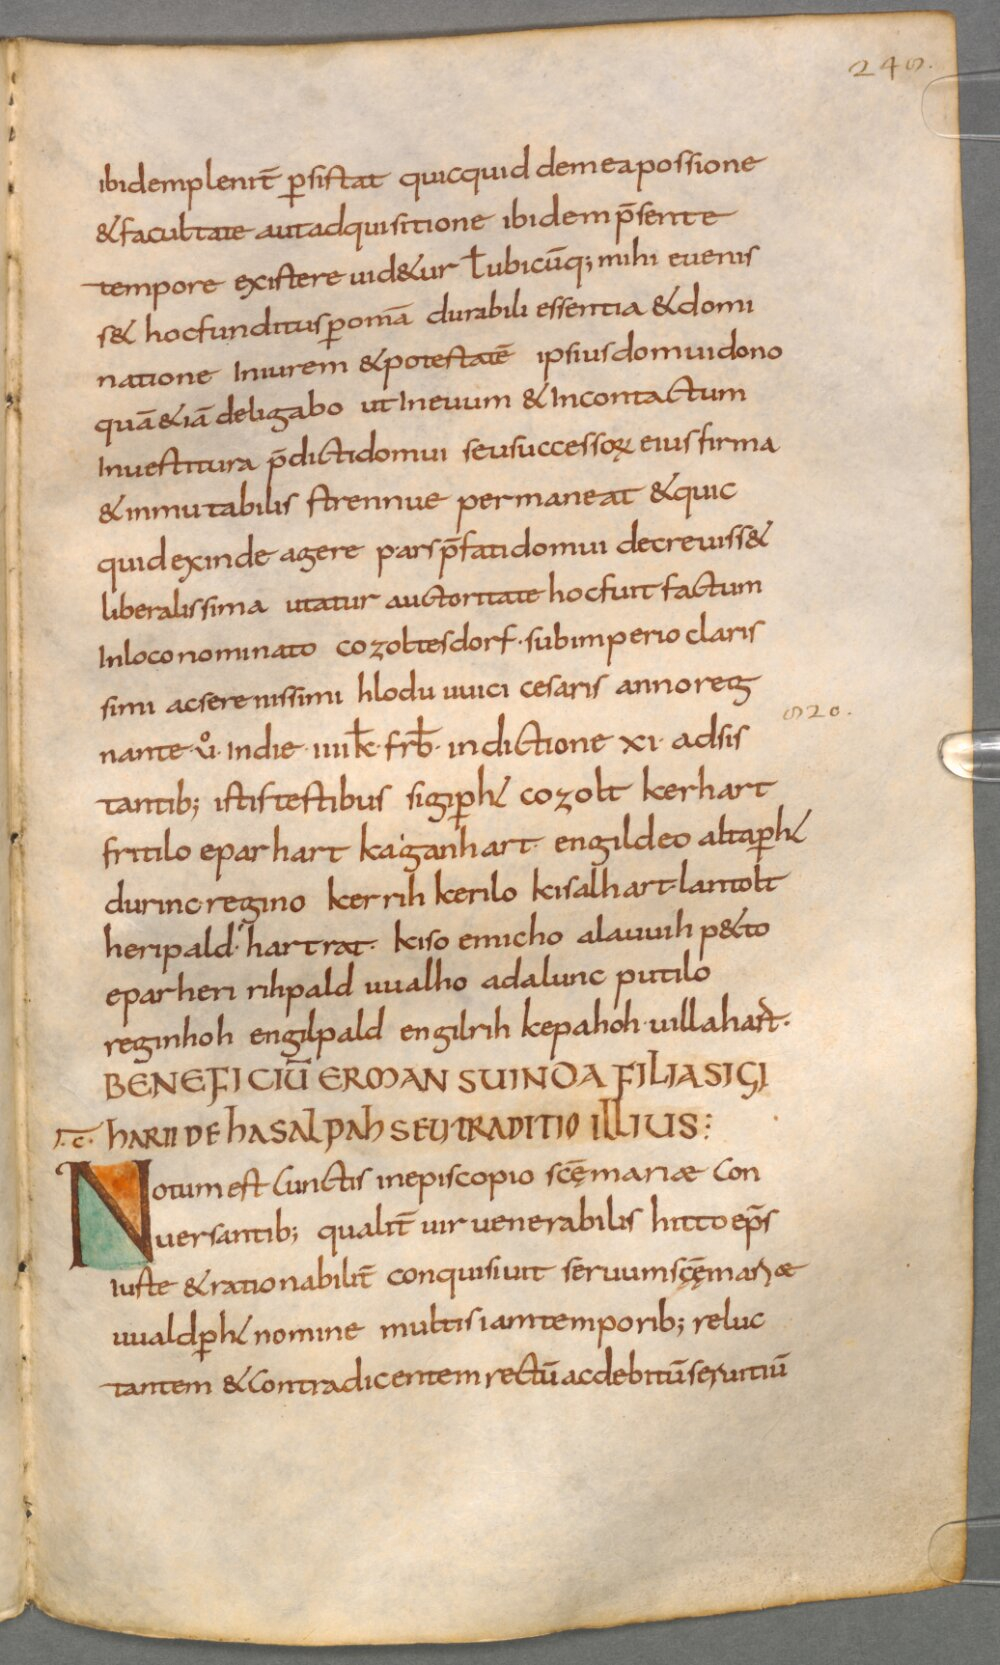 248.
ibidem plenit̄ ꝑsistat quicquid de mea possione
& facultate aut adquisitione ibidem p̄sente
tempore existere uid&ur ƚ ubicūq; mihi euenis
s& hoc funditus ꝑ omā durabili essentia & domi
natione In iurem & potestatē ipsius domui dono
quā & iā deligabo ut In euum & Incontactum
Inuestitura p̄dicti domui seu successoꝝ eius firma
& inmutabilis strennue permaneat & quic
quid exinde agere pars p̄fati domui decreuiss&
liberalissima utatur auctoritate hoc fuit factum
In loco nominato cozoltesdorf · sub imperio claris
simi ac serenissimi hloduuuici cesaris anno reg
820.
nante · ůi · In die · iiii k̄ · frb̄ · indictione xi · adsis
tantib; istis testibus sigiꝑh̄ cozolt kerhart
fritilo eparhart kaganhart · engildeo altaꝑh̄
durinc · regino kerrih kerilo kisalhart · lantolt
heripald · hartrat · kiso emicho alauuih p&to
eparheri rihpald uualho adalunc putilo
reginhoh engilpald engilrih kepahoh · uillahart ·
BENEFICIŪ ERMANSUINDA FILIA SIGI
HARII DE HASALPAH SEU TRADITIO ILLIUS :
Notum est Cunctis in episcopio scę̄ mariæ Con
uersantib; qualit̄ uir uenerabilis hitto ep̄s
iuste & rationabilit̄ conquisiuit seruum scę̄ mariæ
uualdꝑh̄ nomine multis iam temporib; reluc
tantem & Contradicentem rectū ac debitū seruitiū